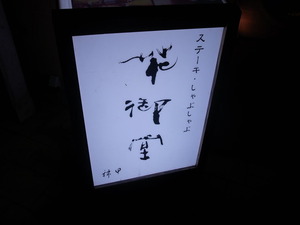 ステーキ・しゃぶしゃぶ
花御堂